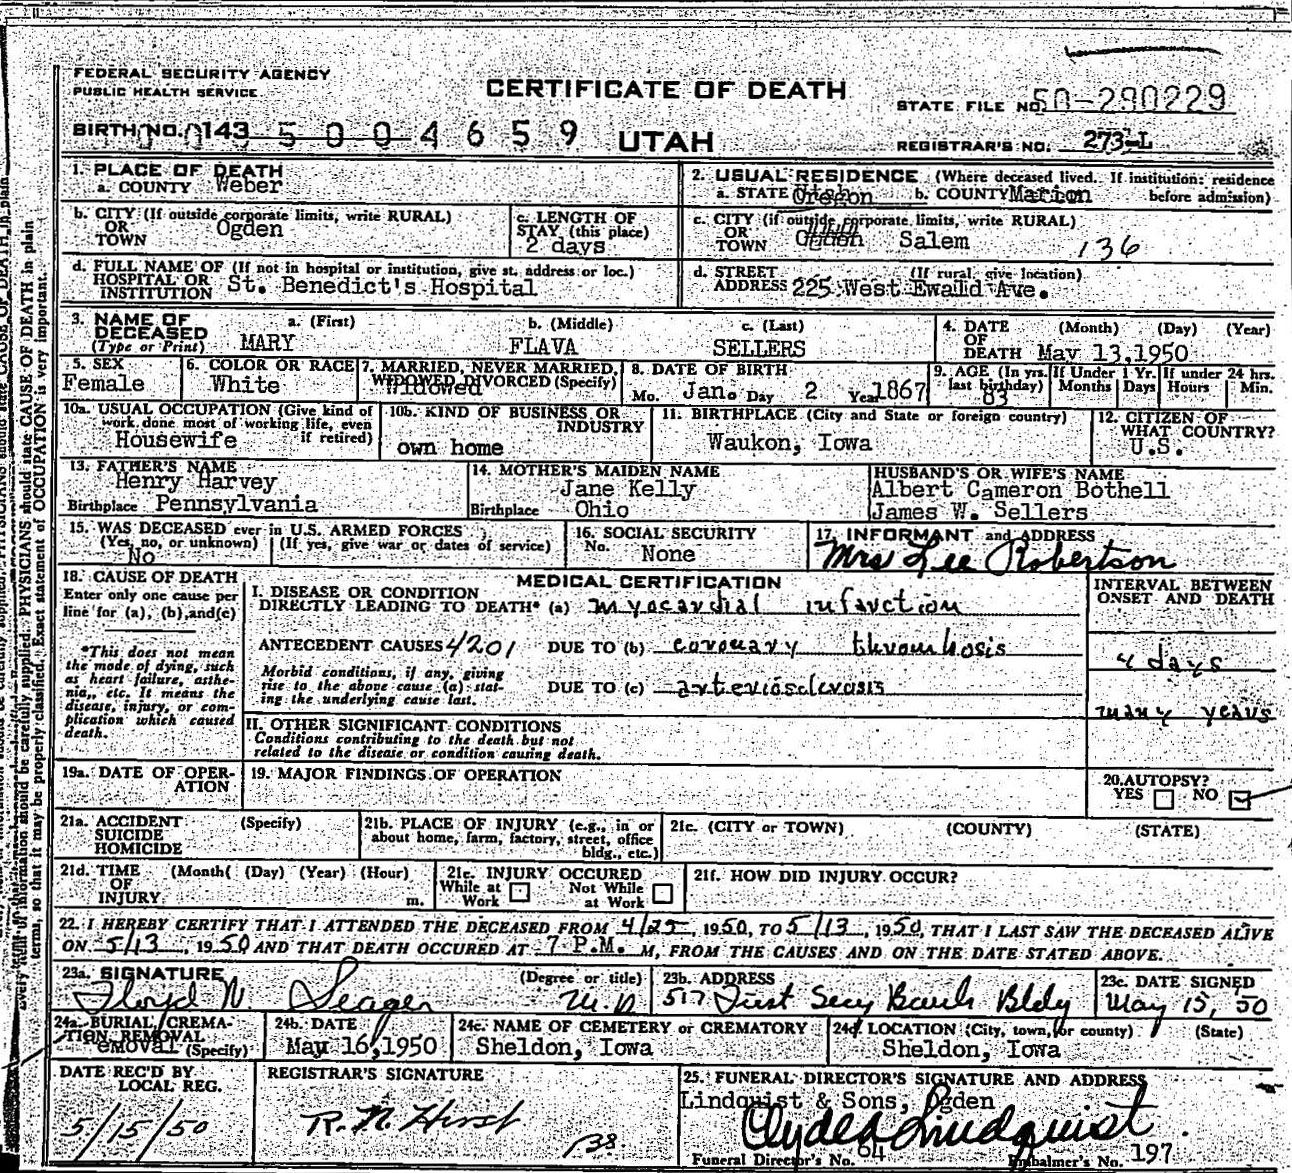 FEDERAL SECURITY AGENCY
PUBLIC HEALTH SERVICE
CERTIFICATE OF DEATH
STATE FILE NO. 50-290229
BIRTH NO. 143 5 0 0 4 6 5 9
UTAH
REGISTRAR'S NO. 273-L
1. PLACE OF DEATH
a. COUNTY Weber
2. USUAL RESIDENCE (Where deceased lived. If institution: residence before admission)
a. STATE Oregon b. COUNTY Marion
b. CITY (If outside corporate limits, write RURAL)
OR TOWN Ogden
c. LENGTH OF STAY (this place)
2 days
c. CITY (if outside corporate limits, write RURAL)
OR TOWN Ogden Salem 136
d. FULL NAME OF (If not in hospital or institution, give st. address or loc.)
HOSPITAL OR INSTITUTION St. Benedict's Hospital
d. STREET ADDRESS (If rural, give location)
225 West Ewald Ave.
3. NAME OF DECEASED (Type or Print)
a. (First) b. (Middle) c. (Last)
MARY FLAVA SELLERS
4. DATE OF DEATH (Month) (Day) (Year)
May 13,1950
5. SEX
Female
6. COLOR OR RACE
White
7. MARRIED, NEVER MARRIED, WIDOWED, DIVORCED (Specify)
Widowed
8. DATE OF BIRTH
Mo. Jan. Day 2 Year 1867
9. AGE (In yrs. last birthday) If Under 1 Yr. If under 24 hrs.
83 Months Days Hours Min.
10a. USUAL OCCUPATION (Give kind of work done most of working life, even if retired)
Housewife
10b. KIND OF BUSINESS OR INDUSTRY
own home
11. BIRTHPLACE (City and State or foreign country)
Waukon, Iowa
12. CITIZEN OF WHAT COUNTRY?
U.S.
13. FATHER'S NAME
Henry Harvey
Birthplace Pennsylvania
14. MOTHER'S MAIDEN NAME
Jane Kelly
Birthplace Ohio
HUSBAND'S OR WIFE'S NAME
Albert Cameron Bothell
James W. Sellers
15. WAS DECEASED ever in U.S. ARMED FORCES
(Yes, no, or unknown) (If yes, give war or dates of service)
No
16. SOCIAL SECURITY
No. None
17. INFORMANT and ADDRESS
Mrs Lee Robertson
18. CAUSE OF DEATH
Enter only one cause per line for (a), (b), and (c)
*This does not mean the mode of dying, such as heart failure, asthenia, etc. It means the disease, injury, or complication which caused death.
MEDICAL CERTIFICATION
INTERVAL BETWEEN ONSET AND DEATH
I. DISEASE OR CONDITION
DIRECTLY LEADING TO DEATH* (a) myocardial infarction
ANTECEDENT CAUSES 4201 DUE TO (b) coronary thrombosis
4 days
Morbid conditions, if any, giving rise to the above cause (a) stating the underlying cause last.
DUE TO (c) arteriosclerosis
many years
II. OTHER SIGNIFICANT CONDITIONS
Conditions contributing to the death but not related to the disease or condition causing death.
19a. DATE OF OPERATION
19. MAJOR FINDINGS OF OPERATION
20. AUTOPSY?
YES NO
21a. ACCIDENT SUICIDE HOMICIDE (Specify)
21b. PLACE OF INJURY (e.g., in or about home, farm, factory, street, office bldg., etc.)
21c. (CITY or TOWN) (COUNTY) (STATE)
21d. TIME OF INJURY (Month( (Day) (Year) (Hour) m.
21e. INJURY OCCURED
While at Work Not While at Work
21f. HOW DID INJURY OCCUR?
22. I HEREBY CERTIFY THAT I ATTENDED THE DECEASED FROM 4/25, 1950, TO 5/13, 1950, THAT I LAST SAW THE DECEASED ALIVE
ON 5/13, 1950 AND THAT DEATH OCCURED AT 7 P.M. M, FROM THE CAUSES AND ON THE DATE STATED ABOVE.
23a. SIGNATURE (Degree or title)
Floyd N Seager M.D
23b. ADDRESS
517 First Secy Bank Bldg
23c. DATE SIGNED
May 15, 50
24a. BURIAL, CREMATION, REMOVAL (Specify)
emoval
24b. DATE
May 16,1950
24c. NAME OF CEMETERY or CREMATORY
Sheldon, Iowa
24d. LOCATION (City, town, or county) (State)
Sheldon, Iowa
DATE REC'D BY LOCAL REG.
5/15/50
REGISTRAR'S SIGNATURE
R. N. Hirst
138
25. FUNERAL DIRECTOR'S SIGNATURE AND ADDRESS
Lindquist & Sons, Ogden
Clyde Lindquist
Funeral Director's No. 64 Embalmer's No. 197